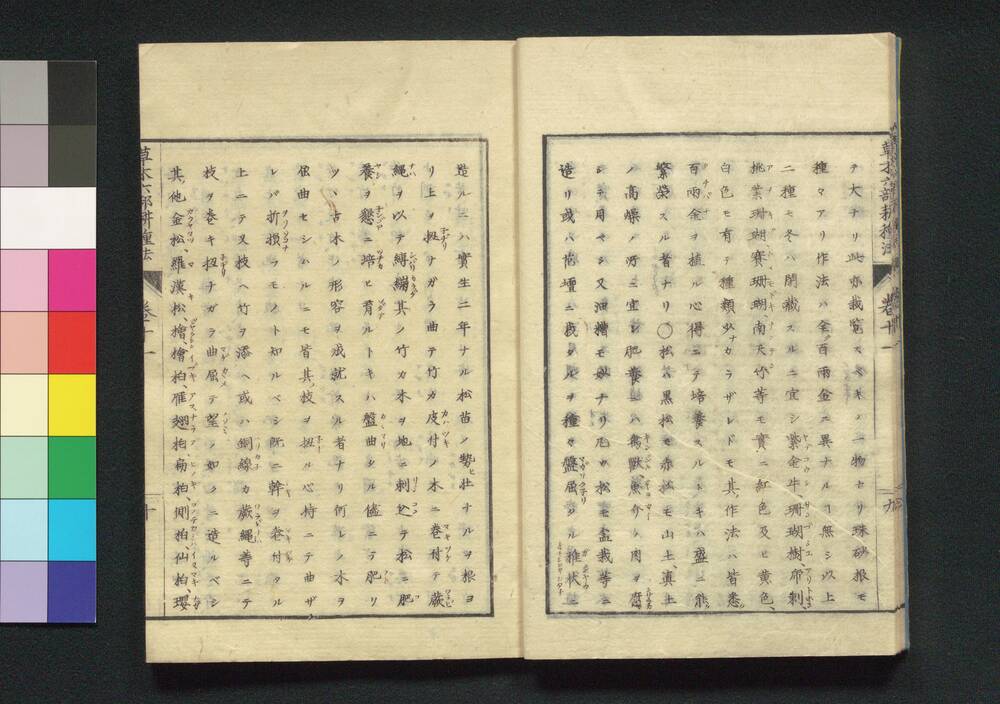 草木六部耕種法 卷十一 九
テ大ナリ此亦栽覧スベキノ一物セリ珠砂根モ
種々アリ作法ハ全百兩金ニ異ナルコ無シ以上
二種モ冬ハ開栽スルニ宜シ紫金牛、珊瑚樹、
桃葉珊瑚賽珊瑚、南天竹等モ實ニ紅色及ヒ黄色、
白色モ有テ種類少ナカラザレドモ其作法ハ皆悉
百兩金ヲ植ル心得ニテ培養スルトキハ盛ニ
繁榮スル者ナリ〇松ハ黒松モ赤松モ山土、真土
ノ高燥ノ所ニ宜シ肥養ニハ禽獸魚介ノ肉ヲ腐
シテ用ヤシ又油糟モ妙ナリ凡ソ松モ盆栽等ニ
造リ或ハ植壇ニ栽タルヲ種々盤屈シタル雅状ニ
造ルニハ實生二年ナル松苗ノ勢ヒ壮ナルヲ根ヨ
リ上ヲ扭ナガラ曲テ竹カ皮付ノ木ニ卷付テ蕨
繩ヲ以テ縛繃其ノ竹カ木ヲ地ニ刺込テ松ニ肥
養ヲ懇ニ培ヒ育ルトキハ盤曲タル儘ニテ肥リ
ツヽ古木ノ形容ヲ成就スル者ナリ何レノ木ヲ
屈曲セシハルニモ皆其枝ヲ扭ル心持ニテ曲ザ
レバ折損ヲモノト知ルベシ既ニ幹ヲ卷付タル
上ニテ又枝ヘ竹ヲ添ヘ或ハ銅線カ蕨繩等ニテ
枝ヲ卷キ扭ナガラ曲屈テ望ノ如クニ造ルベシ
其他金松、羅漢松、檜、檜柏、雁翅柏、匾柏、側柏、仙柏、瓔
草木六部耕種法 卷十一 十